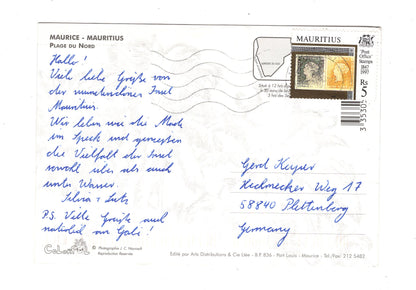 MAURICE - MAURITIUS
PLAGE DU NORD
Hallo!
Viele liebe Grüße von
der wunderschönen Insel
Mauritius.
Wir leben wie die Made
im Speck und genießen
die Vielfalt der Insel
sowohl über als auch
unter Wasser.
Silvia + Lutz
P.S. Viele Grüße auch
natürlich an Gabi!
© Photographie J. C. Nourault
Reproduction Réservée
MAURITIUS
'Post
Office'
Stamps
1847
1997
Rs 5
Gerd Keyser
Hechmecker Weg 17
58840 Plettenberg
Germany
Edité par Arts Distributions & Cie Ltée - B.P. 836 - Port Louis - Maurice - Tel./Fax: 212 5482